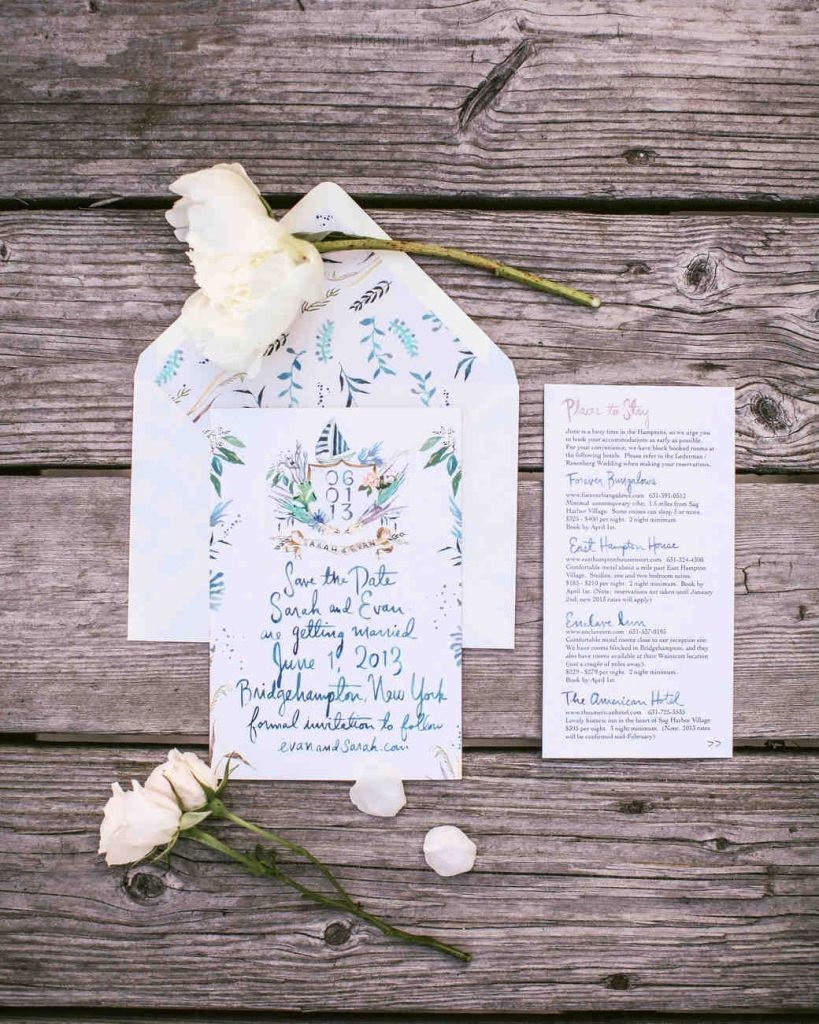 06
01
13
SARAH & EVAN
Save the Date
Sarah and Evan
are getting married
June 1, 2013
Bridgehampton, New York
formal invitation to follow
evanandsarah.com
Places to Stay
June is a busy time in the Hamptons, so we urge you
to book your accommodations as early as possible.
For your convenience, we have block booked rooms at
the following hotels. Please refer to the Lederman /
Rosenberg Wedding when making your reservations.
Forever Bungalows
www.foreverbungalows.com 631-591-0512
Minimal contemporary vibe; 1.5 miles from Sag
Harbor Village. Some rooms can sleep 3 or more.
$325 - $400 per night. 2 night minimum.
Book by April 1st.
East Hampton House
www.easthamptonhouseresort.com 631-324-4300
Comfortable motel about a mile past East Hampton
Village. Studios, one and two bedroom suites.
$185 - $210 per night. 2 night minimum. Book by
April 1st. (Note: reservations not taken until January
2nd; new 2013 rates will apply)
Enclave Inn
www.enclaveinn.com 631-537-0195
Comfortable motel rooms close to our reception site.
We have rooms blocked in Bridgehampton, and they
also have rooms available at their Wainscott location
(just a couple of miles away).
$229 - $279 per night. 2 night minimum.
Book by April 1st.
The American Hotel
www.theamericanhotel.com 631-725-3535
Lovely historic inn in the heart of Sag Harbor Village
$295 per night. 3 night minimum. (Note: 2013 rates
will be confirmed mid-February)
>>